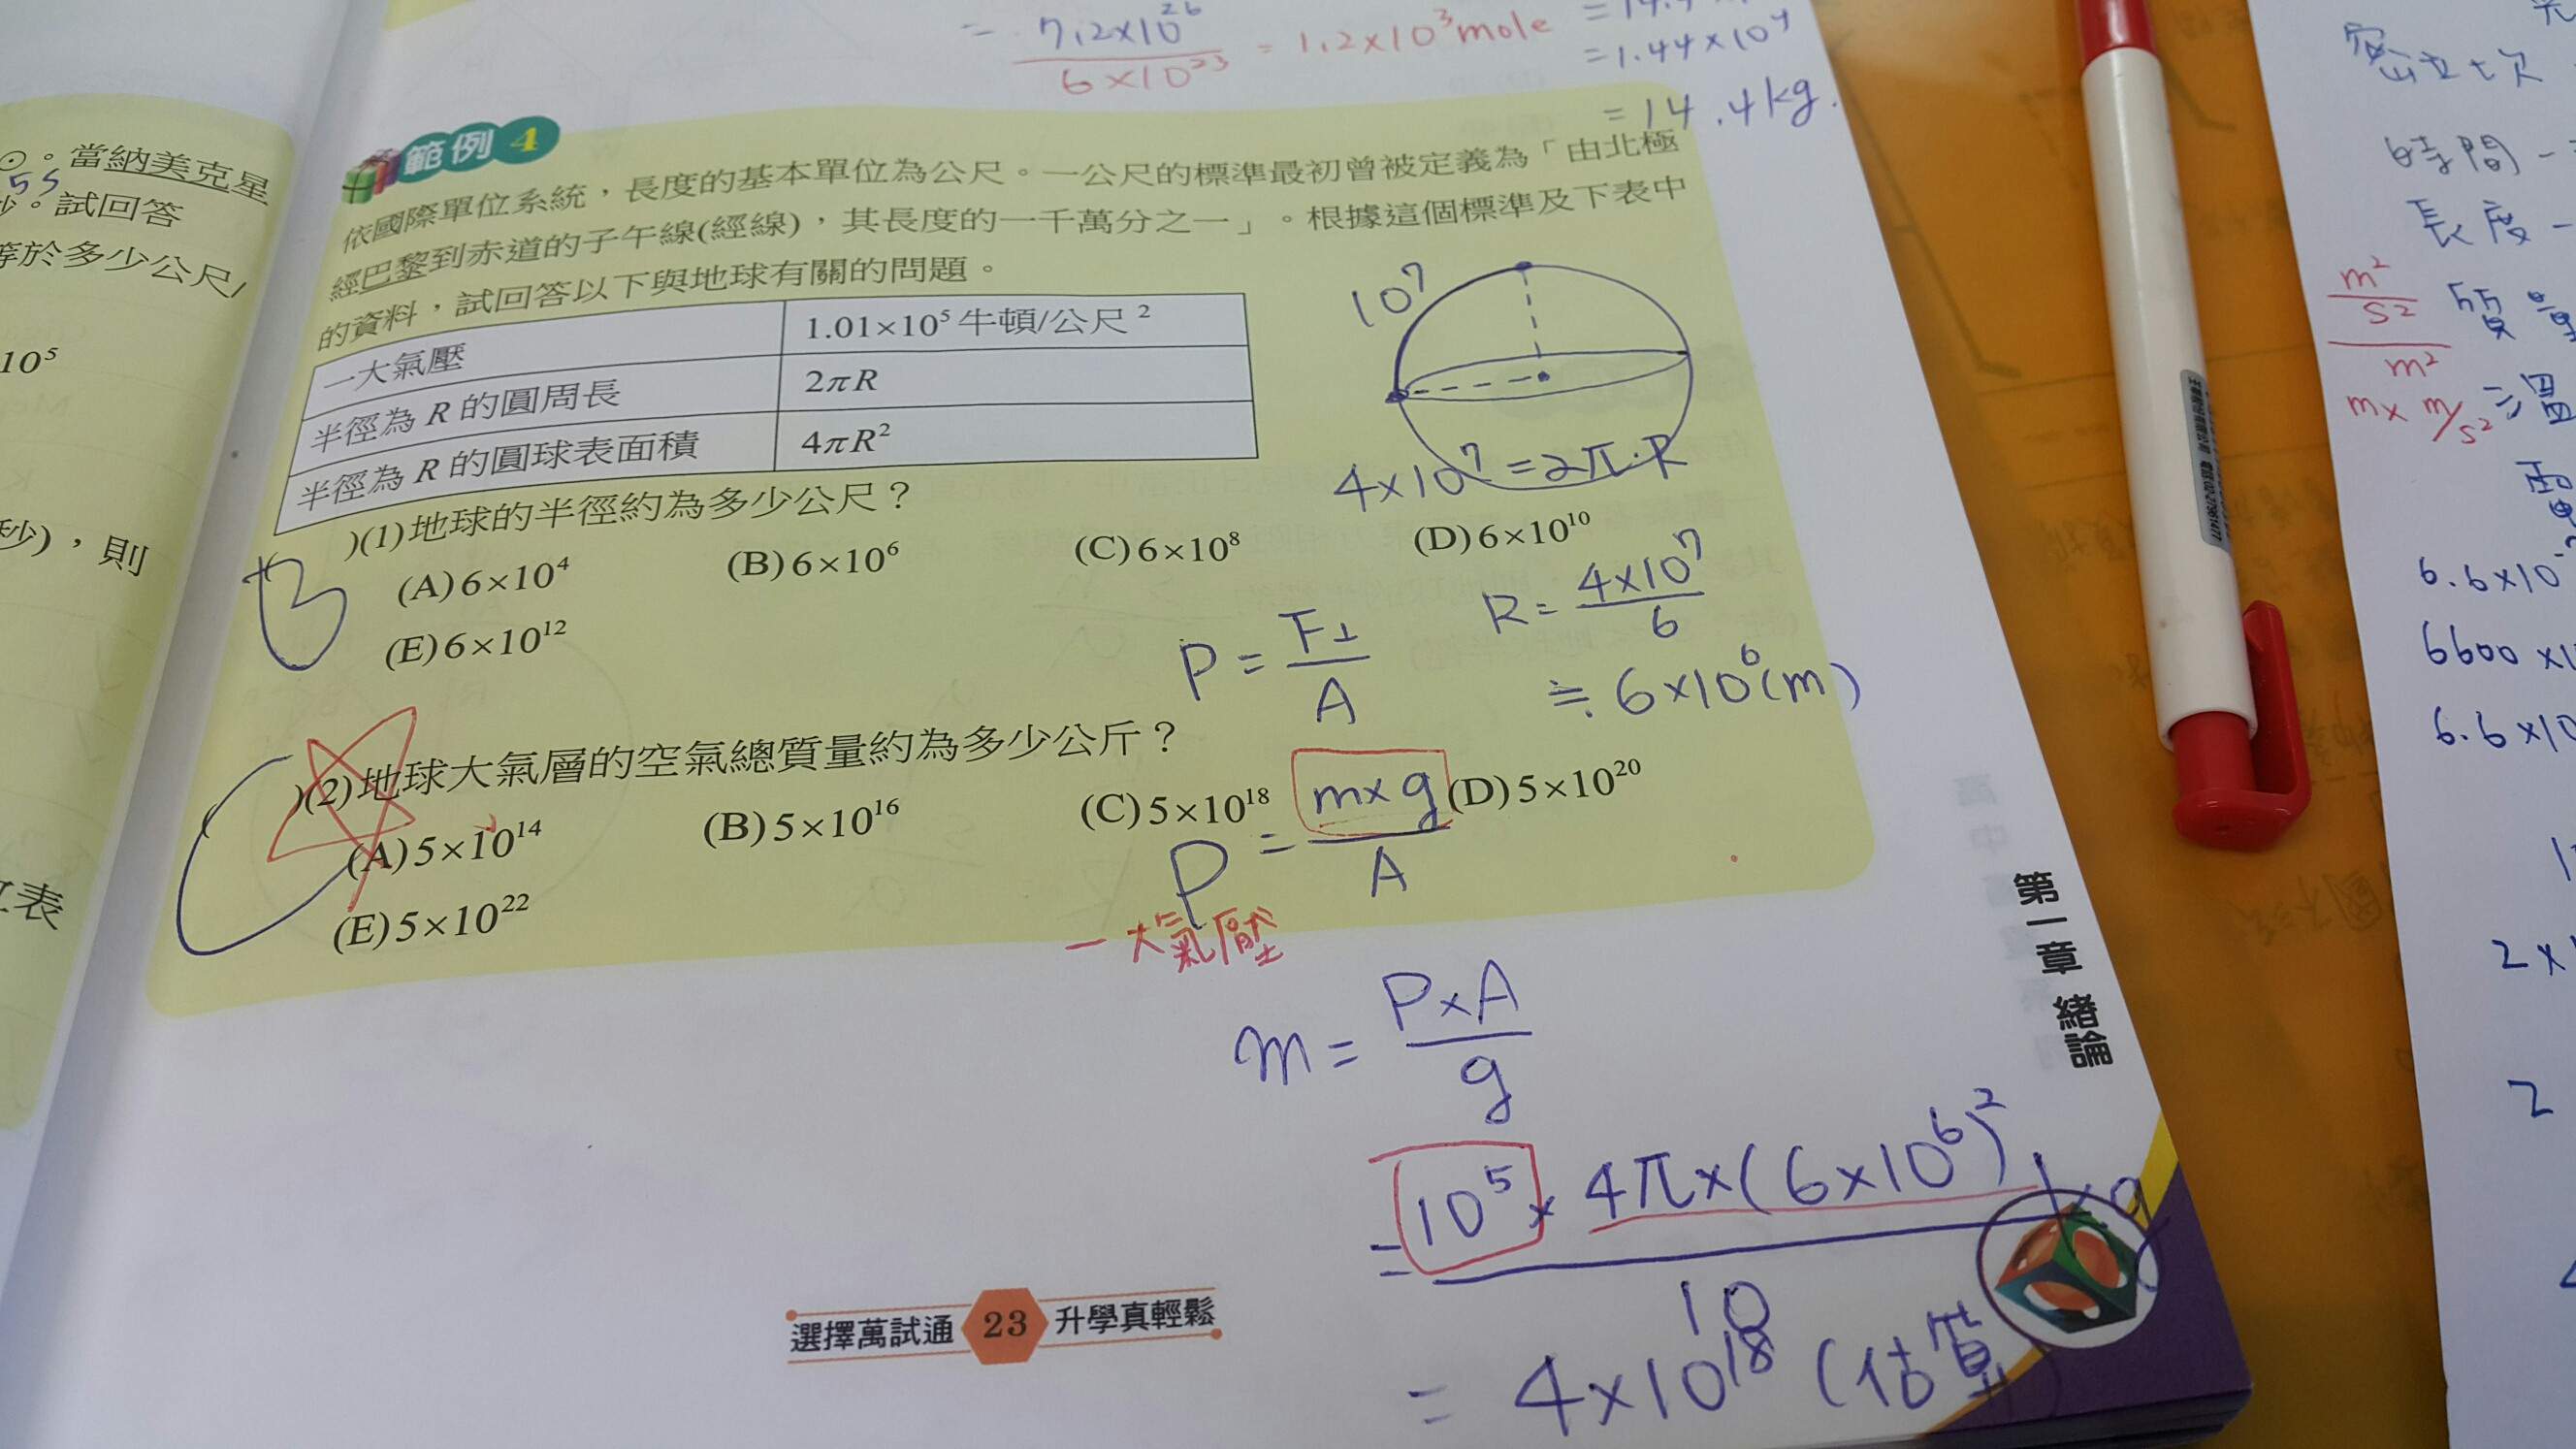 = 7.2×10²⁶ / 6×10²³ = 1.2×10³mole
=1.44×10⁴
=14.4kg.
範例 4
依國際單位系統，長度的基本單位為公尺。一公尺的標準最初曾被定義為「由北極
經巴黎到赤道的子午線(經線)，其長度的一千萬分之一」。根據這個標準及下表中
的資料，試回答以下與地球有關的問題。
一大氣壓 1.01×10⁵牛頓/公尺²
半徑為 R 的圓周長 2πR
半徑為 R 的圓球表面積 4πR²
10⁷
4×10⁷=2π·R
B )(1)地球的半徑約為多少公尺？
(A)6×10⁴ (B)6×10⁶ (C)6×10⁸ (D)6×10¹⁰
(E)6×10¹²
P = F⊥ / A
R = 4×10⁷ / 6
≒ 6×10⁶(m)
( C )(2)地球大氣層的空氣總質量約為多少公斤？
(A)5×10¹⁴ (B)5×10¹⁶ (C)5×10¹⁸ (D)5×10²⁰
(E)5×10²²
P = m×g / A
一大氣壓
m = P×A / g
= 10⁵ × 4π×(6×10⁶)² / 10
= 4×10¹⁸ (估算
選擇萬試通 23 升學真輕鬆
第一章 緒論
。當納美克星
5s
秒。試回答
等於多少公尺/
10⁵
秒)，則
表
時間-
長度-
m²/s² / m²
質量
m×m/s²
溫
6.6×10
6600×1
6.6×10
2×1
2